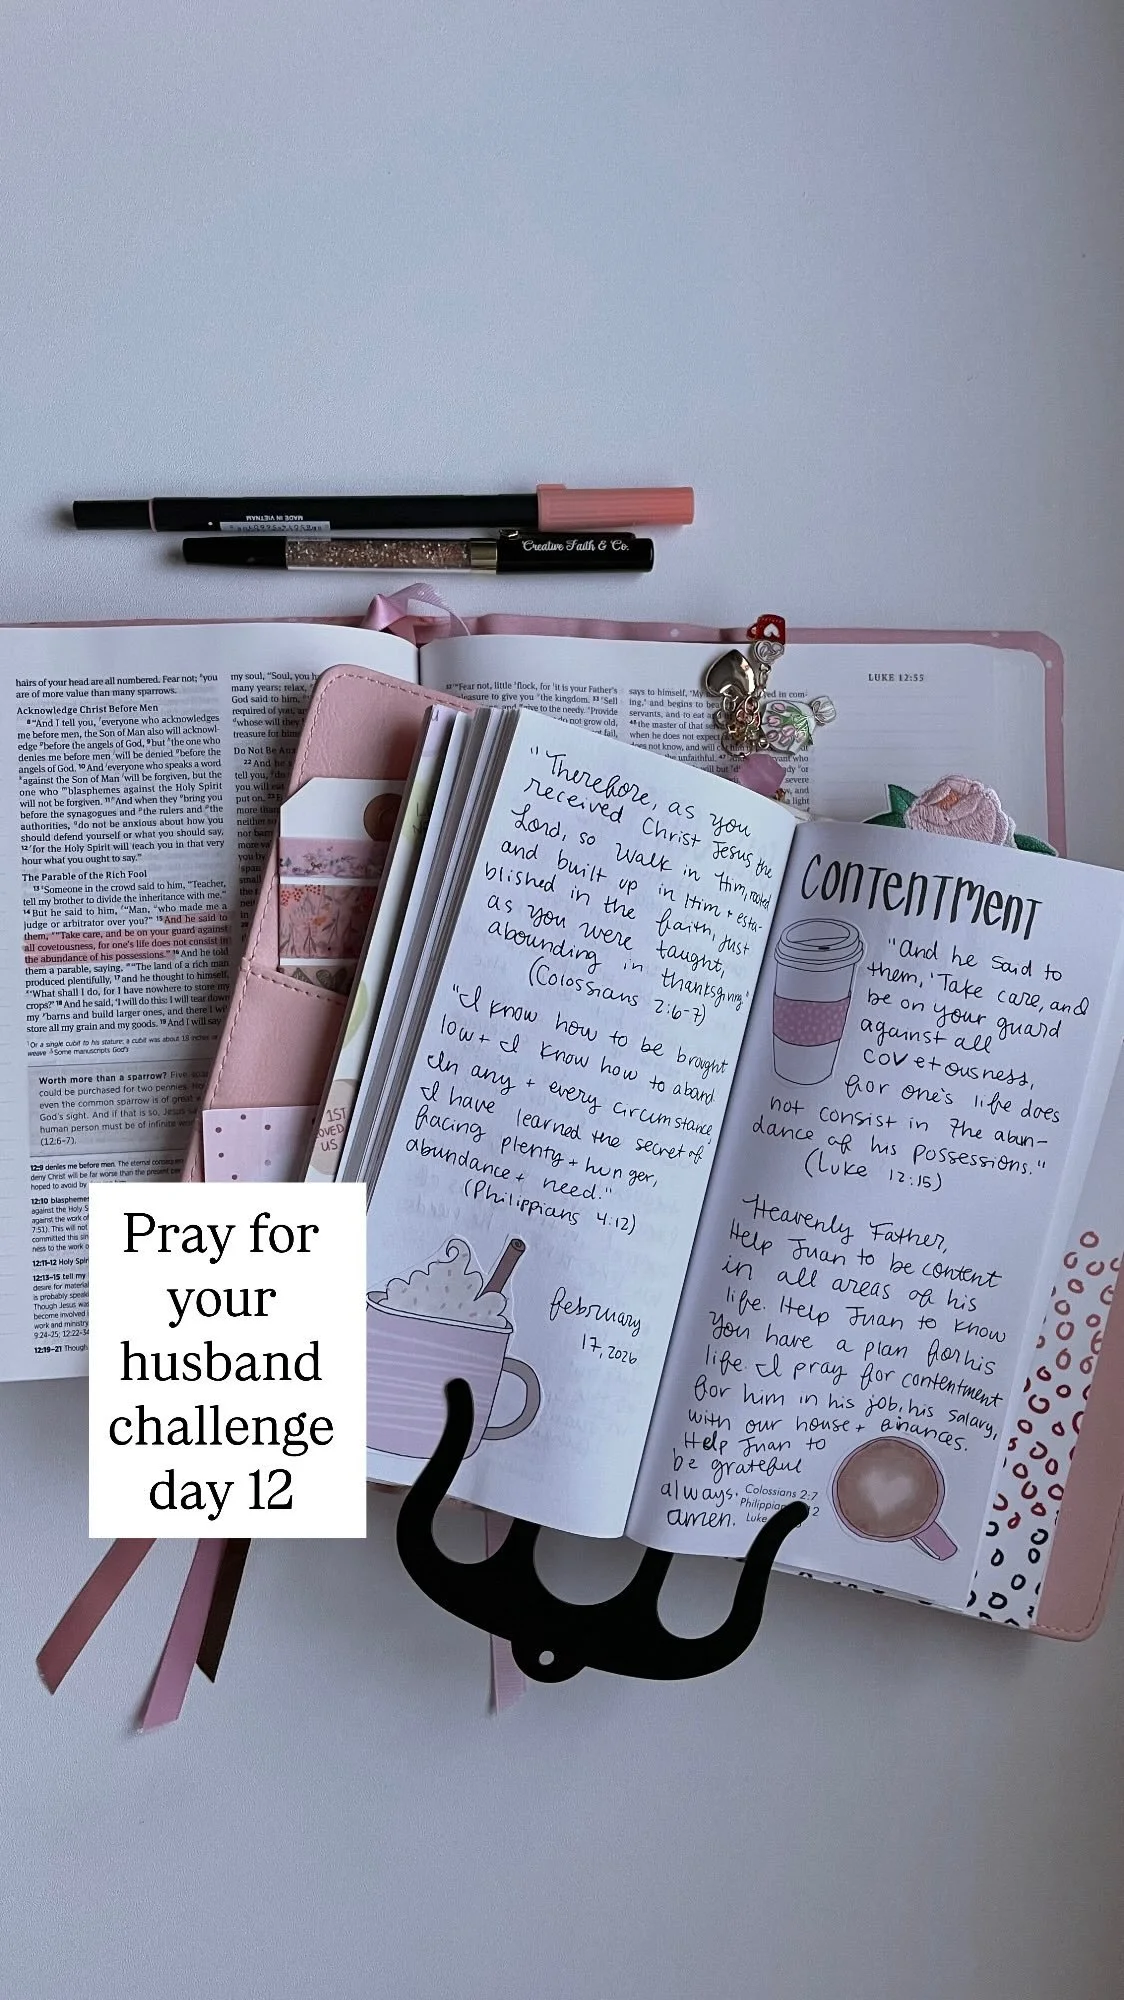 MADE IN VIETNAM
Creative Faith & Co.
hairs of your head are all numbered. Fear not; you
are of more value than many sparrows.
Acknowledge Christ Before Men
8 "And I tell you, everyone who acknowledges
me before men, the Son of Man also will acknowl-
edge before the angels of God, 9 but the one who
denies me before men will be denied before the
angels of God. 10 And everyone who speaks a word
against the Son of Man will be forgiven, but the
one who blasphemes against the Holy Spirit
will not be forgiven. 11 And when they bring you
before the synagogues and the rulers and the
authorities, do not be anxious about how you
should defend yourself or what you should say,
12 for the Holy Spirit will teach you in that very
hour what you ought to say."
The Parable of the Rich Fool
13 Someone in the crowd said to him, "Teacher,
tell my brother to divide the inheritance with me."
14 But he said to him, "Man, who made me a
judge or arbitrator over you?" 15 And he said to
them, "Take care, and be on your guard against
all covetousness, for one's life does not consist in
the abundance of his possessions." 16 And he told
them a parable, saying, "The land of a rich man
produced plentifully, 17 and he thought to himself,
'What shall I do, for I have nowhere to store my
crops?' 18 And he said, 'I will do this: I will tear down
my barns and build larger ones, and there I wi
store all my grain and my goods. 19 And I will say
Or a single cubit to his stature; a cubit was about 18 inches
weave Some manuscripts God's
Worth more than a sparrow? Five
could be purchased for two pennies.
even the common sparrow is of great
God's sight. And if that is so, Jesus
human person must be of infinite
(12:6–7).
12:9 denies me before men. The eternal
deny Christ will be far worse than the present
hoped to avoid by
12:10 blaspheme
against the Holy S
7:51). This will not
committed this sin
ness to the work o
12:11–12 Holy Spir
12:13–15 tell my
desire for material
is probably speak
Though Jesus was
become involved i
work and ministry
9:24–25; 12:22–34
12:19–21 Though
my soul, "Soul, you h
many years; relax,
God said to him,
required of you, an
whose will they
treasure for him
Do Not Be Anx
22 And he
tell you,
you will
put on.
more than
neither
nor barn
1ST
OVED
US
32 "Fear not, little flock, for it is your Father's
pleasure to give you the kingdom. 33 Sell
and give to the needy. Provide
do not grow old,
fail,
says to himself, 'My
ing,' and begins to bea
servants, and to eat a
46 the master of that
when he does not expect
does not know, and will
unfaithful.
LUKE 12:55
"Therefore, as you
received Christ Jesus the
Lord, so walk in Him, rooted
and built up in Him + esta-
blished in the faith, just
as you were taught,
abounding in thanksgiving"
(Colossians 2:6-7)
"I know how to be brought
low + I know how to abound.
In any + every circumstance,
I have learned the secret of
facing plenty + hunger,
abundance + need."
(Philippians 4:12)
february
17, 2026
CONTENTMENT
"And he said to
them, 'Take care, and
be on your guard
against all
covetousness,
for one's life does
not consist in the abun-
dance of his possessions."
(Luke 12:15)
Heavenly Father,
Help Juan to be content
in all areas of his
life. Help Juan to know
you have a plan for his
life. I pray for contentment
for him in his job, his salary,
with our house + finances.
Help Juan to
be grateful
always.
amen.
Colossians 2:7
Philippia 12
Luke
Pray for
your
husband
challenge
day 12